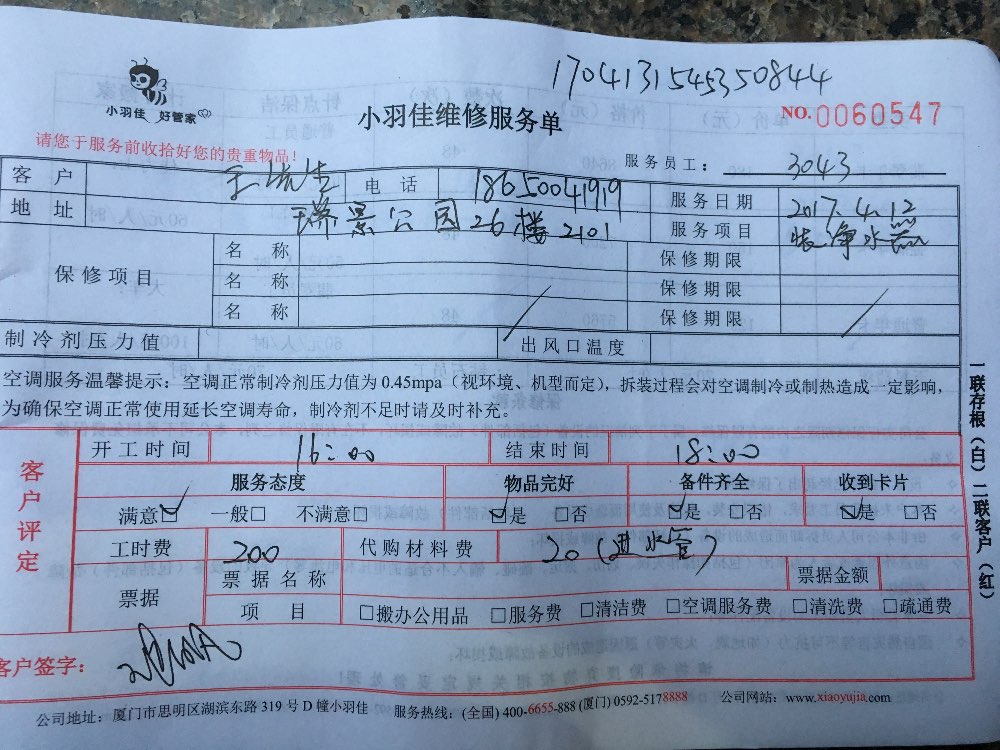 1704131545350844
小羽佳 好管家
小羽佳维修服务单
NO.0060547
请您于服务前收拾好您的贵重物品!
服务员工: 3043
客户 王先生 电话 18650041919 服务日期 2017.4.12
地址 瑞景公园26楼2101 服务项目 装净水器
保修项目 名称 保修期限
名称 保修期限
名称 保修期限
制冷剂压力值 出风口温度
空调服务温馨提示:空调正常制冷剂压力值为0.45mpa(视环境、机型而定),拆装过程会对空调制冷或制热造成一定影响,
为确保空调正常使用延长空调寿命,制冷剂不足时请及时补充。
一联存根(白)二联客户(红)
客户评定
开工时间 16:00 结束时间 18:00
服务态度 物品完好 备件齐全 收到卡片
满意☑ 一般□ 不满意□ ☑是 □否 ☑是 □否 ☑是 □否
工时费 200 代购材料费 20(进水管)
票据 票据名称 票据金额
项目 □搬办公用品 □服务费 □清洁费 □空调服务费 □清洗费 □疏通费
客户签字:
公司地址:厦门市思明区湖滨东路319号D幢小羽佳 服务热线:(全国)400-6655-888(厦门)0592-5178888 公司网站:www.xiaoyujia.com